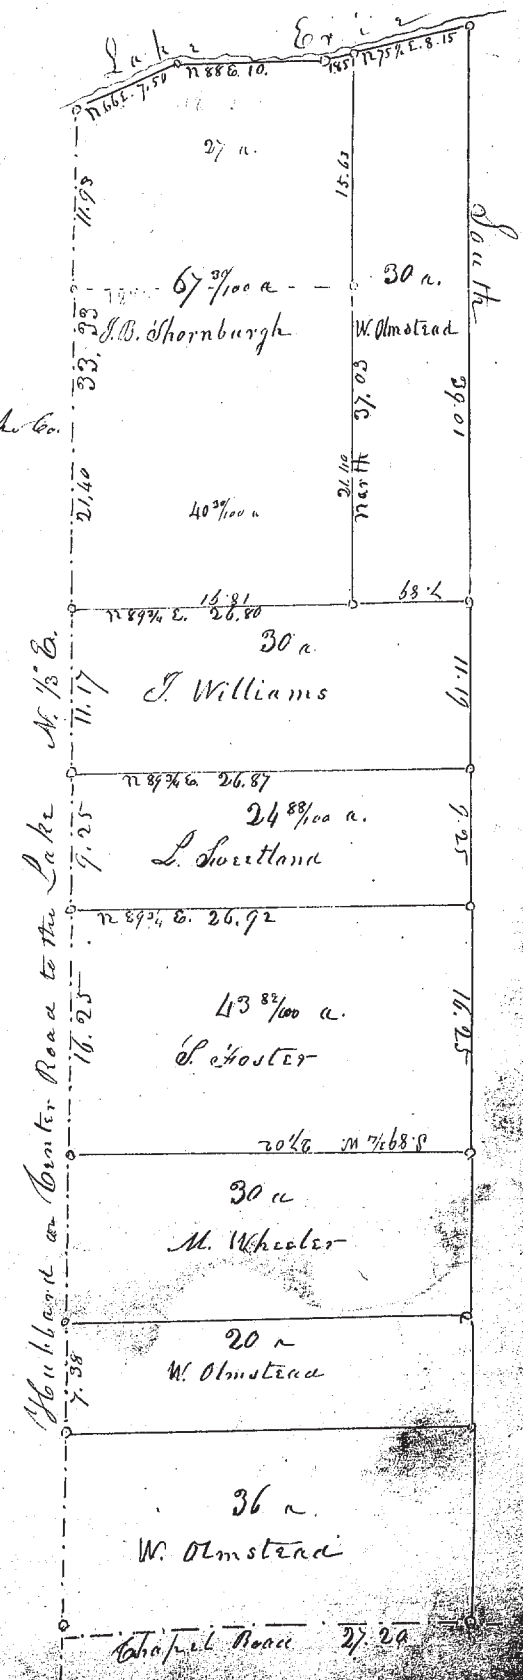 Lake Erie
N66E. 7.50
N88E. 10.
1.85
N75¾E. 8.15
27 a.
11.93
15.63
South
67 30/100 a
30 a.
J.B. Thornburgh
W. Olmstead
33.33
North 37.03
39.01
Co.
21.40
21.40
40 30/100 a
19.18
7.89
N89¾ E. 26.80
30 a.
J. Williams
11.17
11.19
N 89¾ E. 26.87
24 88/100 a.
L. Sweetland
9.25
9.25
N 89¾ E. 26.92
43 82/100 a.
S. Foster
16.25
16.25
S.89¾ W. 27.02
30 a
M. Wheeler
20 a
W. Olmstead
7.38
36 a.
W. Olmstead
Hubbard or Center Road to the Lake N. ½° E.
Chapel Road 27.20